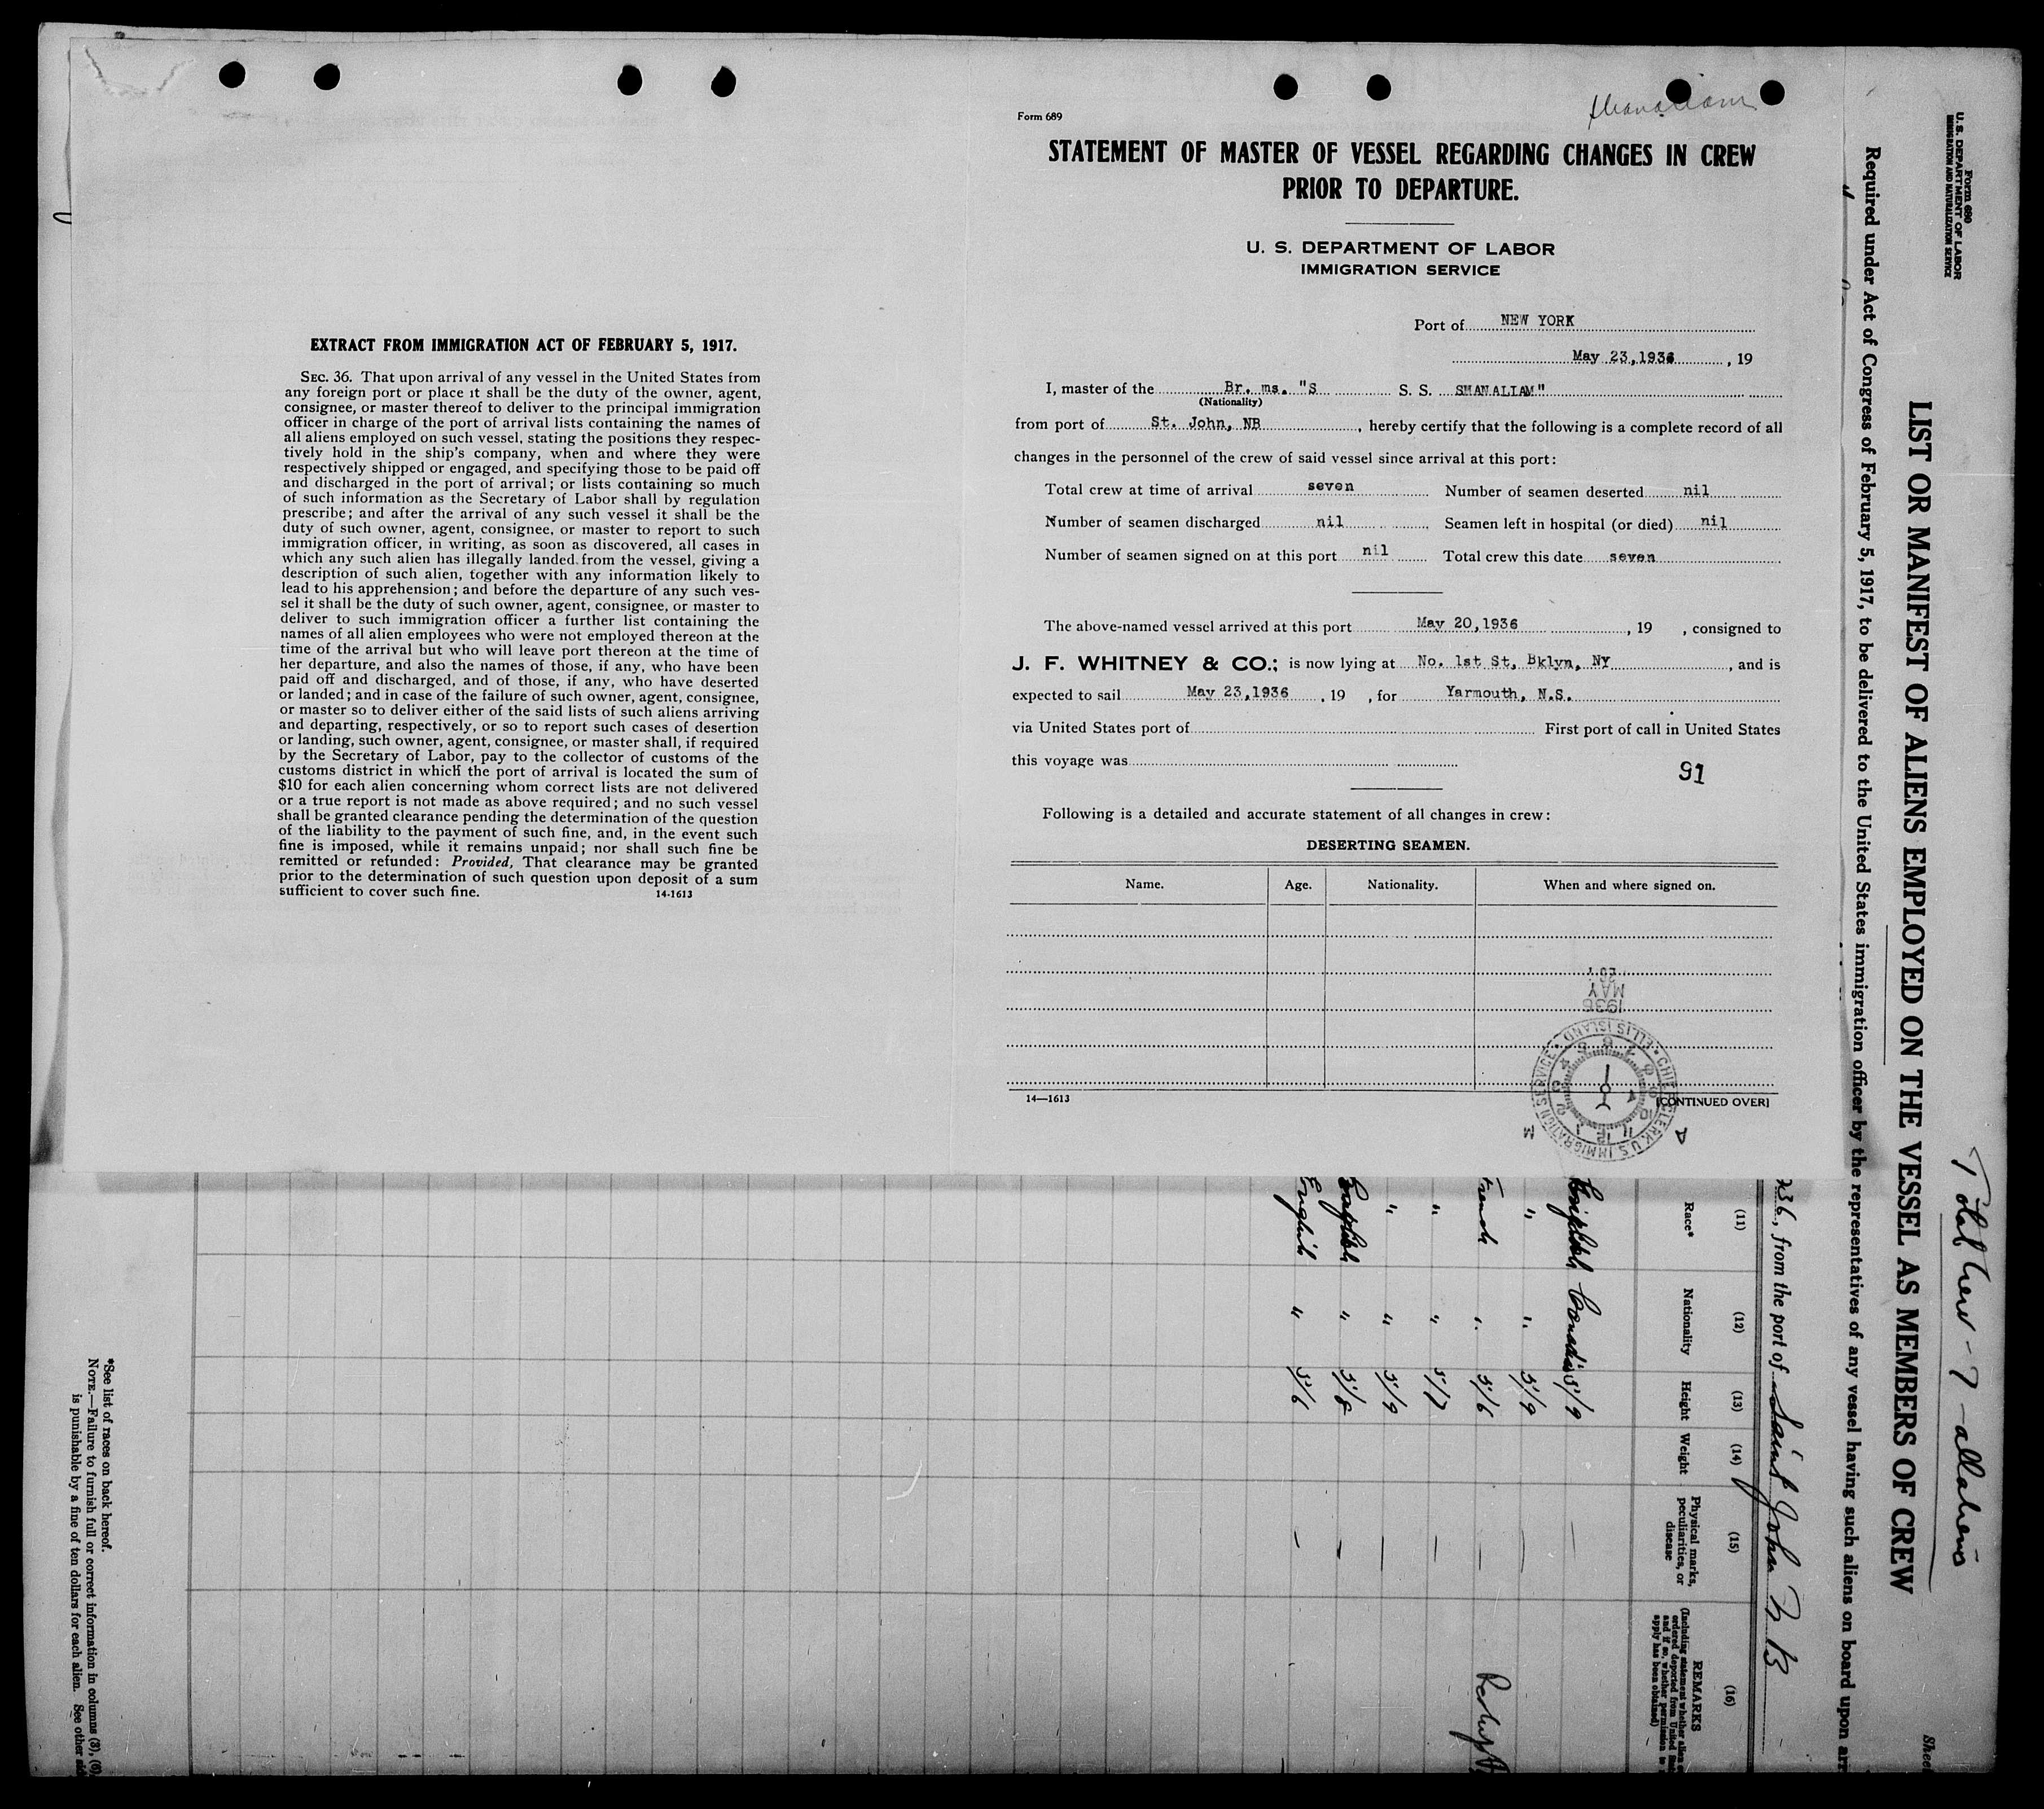 EXTRACT FROM IMMIGRATION ACT OF FEBRUARY 5, 1917.
SEC. 36. That upon arrival of any vessel in the United States from
any foreign port or place it shall be the duty of the owner, agent,
consignee, or master thereof to deliver to the principal immigration
officer in charge of the port of arrival lists containing the names of
all aliens employed on such vessel, stating the positions they respec-
tively hold in the ship's company, when and where they were
respectively shipped or engaged, and specifying those to be paid off
and discharged in the port of arrival; or lists containing so much
of such information as the Secretary of Labor shall by regulation
prescribe; and after the arrival of any such vessel it shall be the
duty of such owner, agent, consignee, or master to report to such
immigration officer, in writing, as soon as discovered, all cases in
which any such alien has illegally landed from the vessel, giving a
description of such alien, together with any information likely to
lead to his apprehension; and before the departure of any such ves-
sel it shall be the duty of such owner, agent, consignee, or master to
deliver to such immigration officer a further list containing the
names of all alien employees who were not employed thereon at the
time of the arrival but who will leave port thereon at the time of
her departure, and also the names of those, if any, who have been
paid off and discharged, and of those, if any, who have deserted
or landed; and in case of the failure of such owner, agent, consignee,
or master so to deliver either of the said lists of such aliens arriving
and departing, respectively, or so to report such cases of desertion
or landing, such owner, agent, consignee, or master shall, if required
by the Secretary of Labor, pay to the collector of customs of the
customs district in which the port of arrival is located the sum of
$10 for each alien concerning whom correct lists are not delivered
or a true report is not made as above required; and no such vessel
shall be granted clearance pending the determination of the question
of the liability to the payment of such fine, and, in the event such
fine is imposed, while it remains unpaid; nor shall such fine be
remitted or refunded: Provided, That clearance may be granted
prior to the determination of such question upon deposit of a sum
sufficient to cover such fine. 14-1613
Form 689
STATEMENT OF MASTER OF VESSEL REGARDING CHANGES IN CREW
PRIOR TO DEPARTURE.
U. S. DEPARTMENT OF LABOR
IMMIGRATION SERVICE
Port of NEW YORK
May 23,1936, 19
I, master of the Br. ms. "S S. S. SHANALIAM"
(Nationality)
from port of St. John, NB, hereby certify that the following is a complete record of all
changes in the personnel of the crew of said vessel since arrival at this port:
Total crew at time of arrival seven Number of seamen deserted nil
Number of seamen discharged nil Seamen left in hospital (or died) nil
Number of seamen signed on at this port nil Total crew this date seven
The above-named vessel arrived at this port May 20,1936, 19 , consigned to
J. F. WHITNEY & CO.; is now lying at No. 1st St, Bklyn, NY, and is
expected to sail May 23,1936, 19 , for Yarmouth, N.S.
via United States port of First port of call in United States
this voyage was
91
Following is a detailed and accurate statement of all changes in crew:
DESERTING SEAMEN.
Name. Age. Nationality. When and where signed on.
1936
MAY
CHIEF CLERK U.S. IMMIGRATION SERVICE • ELLIS ISLAND
A M
14—1613 [CONTINUED OVER]
Form 680
U. S. DEPARTMENT OF LABOR
IMMIGRATION AND NATURALIZATION SERVICE
Total Crew - 7 - all aliens
Sheet
LIST OR MANIFEST OF ALIENS EMPLOYED ON THE VESSEL AS MEMBERS OF CREW
Required under Act of Congress of February 5, 1917, to be delivered to the United States immigration officer by the representatives of any vessel having such aliens on board upon arr
236, from the port of Saint John N B
(11) (12) (13) (14) (15) (16)
Race* Nationality Height Weight Physical marks, peculiarities, or disease REMARKS
(Including statement whether alien
ordered deported from United
and if so, whether permission to
apply has been obtained)
5/9 —
" " 5/9 —
French " 5/6 —
" " 5/7 —
" " 5/9 —
English " 5/8 —
English " 5/6 —
*See list of races on back hereof.
NOTE.—Failure to furnish full or correct information in columns (3), (6),
is punishable by a fine of ten dollars for each alien. See other side